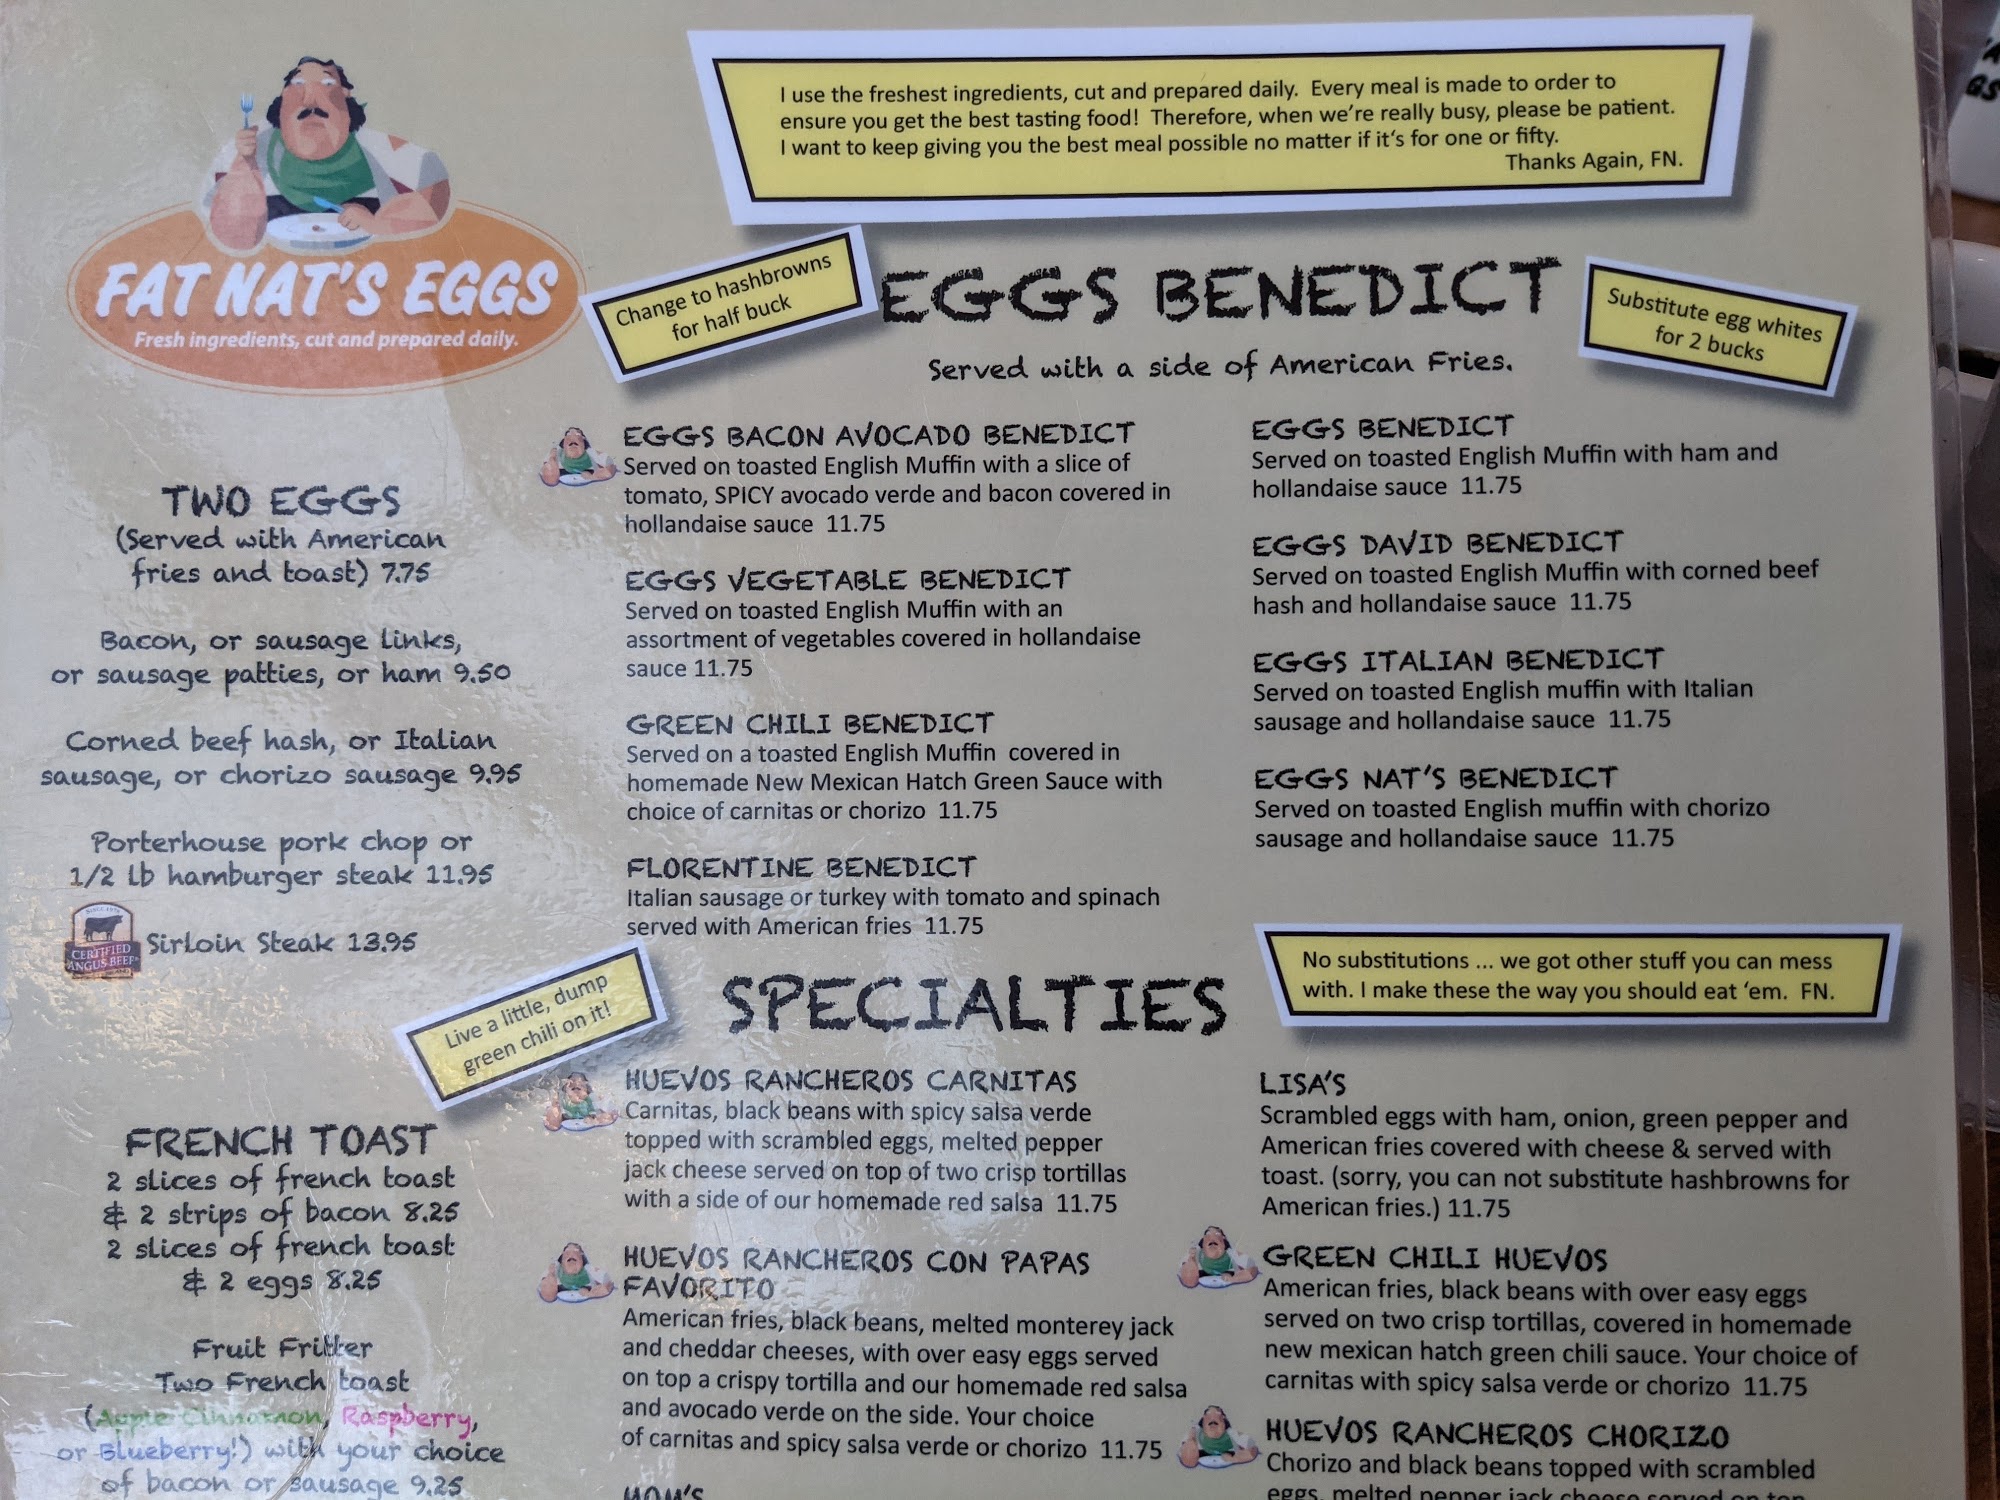 I use the freshest ingredients, cut and prepared daily. Every meal is made to order to
ensure you get the best tasting food! Therefore, when we're really busy, please be patient.
I want to keep giving you the best meal possible no matter if it's for one or fifty.
Thanks Again, FN.
FAT NAT'S EGGS
Fresh ingredients, cut and prepared daily.
TWO EGGS
(Served with American
fries and toast) 7.75
Bacon, or sausage links,
or sausage patties, or ham 9.50
Corned beef hash, or Italian
sausage, or chorizo sausage 9.95
Porterhouse pork chop or
1/2 lb hamburger steak 11.95
CERTIFIED
ANGUS BEEF
Sirloin Steak 13.95
FRENCH TOAST
2 slices of french toast
& 2 strips of bacon 8.25
2 slices of french toast
& 2 eggs 8.25
Fruit Fritter
Two French toast
(Apple Cinnamon, Raspberry,
or Blueberry!) with your choice
of bacon or sausage 9.25
Change to hashbrowns
for half buck
EGGS BENEDICT
Substitute egg whites
for 2 bucks
Served with a side of American Fries.
EGGS BACON AVOCADO BENEDICT
Served on toasted English Muffin with a slice of
tomato, SPICY avocado verde and bacon covered in
hollandaise sauce 11.75
EGGS VEGETABLE BENEDICT
Served on toasted English Muffin with an
assortment of vegetables covered in hollandaise
sauce 11.75
GREEN CHILI BENEDICT
Served on a toasted English Muffin covered in
homemade New Mexican Hatch Green Sauce with
choice of carnitas or chorizo 11.75
FLORENTINE BENEDICT
Italian sausage or turkey with tomato and spinach
served with American fries 11.75
EGGS BENEDICT
Served on toasted English Muffin with ham and
hollandaise sauce 11.75
EGGS DAVID BENEDICT
Served on toasted English Muffin with corned beef
hash and hollandaise sauce 11.75
EGGS ITALIAN BENEDICT
Served on toasted English muffin with Italian
sausage and hollandaise sauce 11.75
EGGS NAT'S BENEDICT
Served on toasted English muffin with chorizo
sausage and hollandaise sauce 11.75
Live a little, dump
green chili on it!
SPECIALTIES
No substitutions ... we got other stuff you can mess
with. I make these the way you should eat 'em. FN.
HUEVOS RANCHEROS CARNITAS
Carnitas, black beans with spicy salsa verde
topped with scrambled eggs, melted pepper
jack cheese served on top of two crisp tortillas
with a side of our homemade red salsa 11.75
HUEVOS RANCHEROS CON PAPAS
FAVORITO
American fries, black beans, melted monterey jack
and cheddar cheeses, with over easy eggs served
on top a crispy tortilla and our homemade red salsa
and avocado verde on the side. Your choice
of carnitas and spicy salsa verde or chorizo 11.75
MOM'S
LISA'S
Scrambled eggs with ham, onion, green pepper and
American fries covered with cheese & served with
toast. (sorry, you can not substitute hashbrowns for
American fries.) 11.75
GREEN CHILI HUEVOS
American fries, black beans with over easy eggs
served on two crisp tortillas, covered in homemade
new mexican hatch green chili sauce. Your choice of
carnitas with spicy salsa verde or chorizo 11.75
HUEVOS RANCHEROS CHORIZO
Chorizo and black beans topped with scrambled
eggs, melted pepper jack cheese served on top